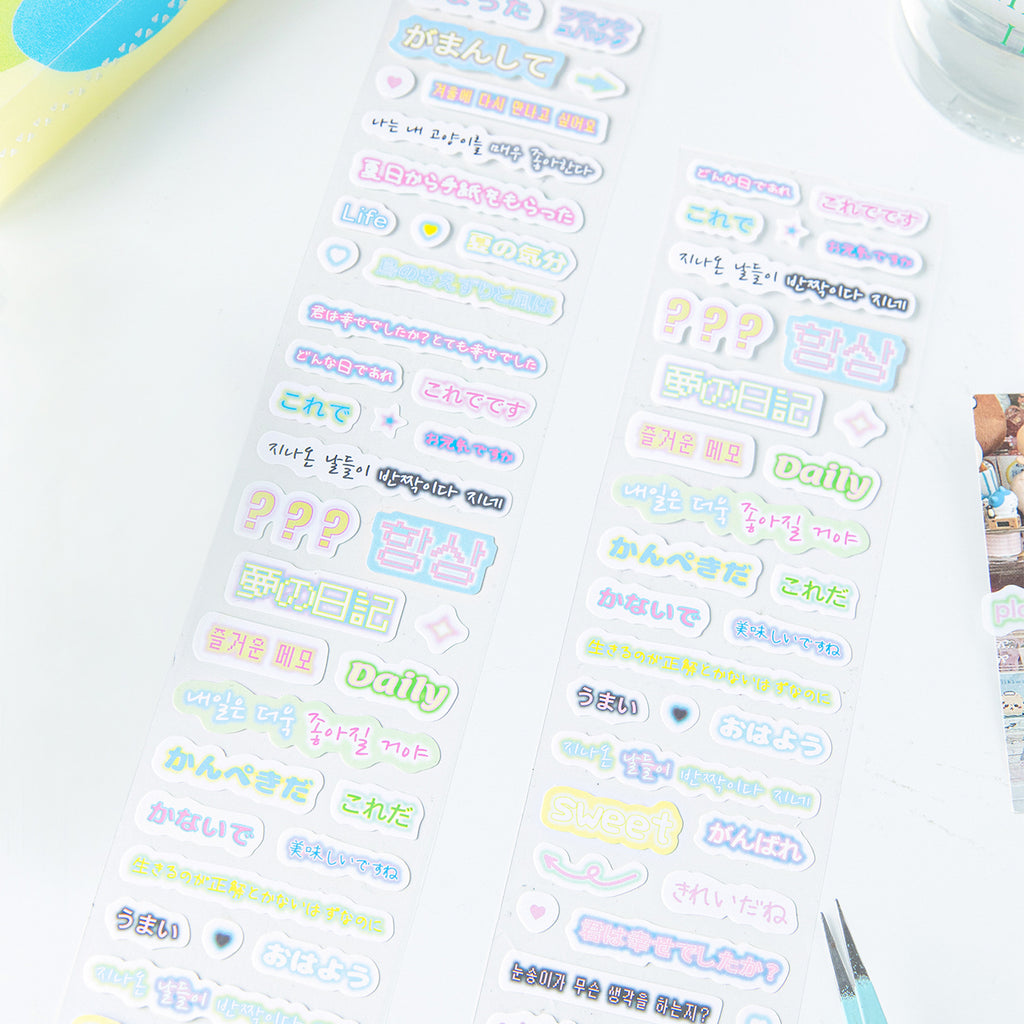 った
がまんして
겨울에 다시 만나고 싶어요
나는 내 고양이를 매우 좋아한다
夏日から手紙をもらった
Life
夏の気分
君は幸せでしたか?とても幸せでした
どんな日であれ
これでです
これで
お元気ですか
지나온 날들이 반짝이다 지네
???
항상
夏の日記
즐거운 메모
Daily
내일은 더욱 좋아질 거야
かんぺきだ
これだ
かないで
美味しいですね
生きるのが正解とかないはずなのに
うまい
おはよう
지나온 날들이 반짝이다
どんな日であれ
これでです
これで
お元気ですか
지나온 날들이 반짝이다 지네
???
항상
夏の日記
즐거운 메모
Daily
내일은 더욱 좋아질 거야
かんぺきだ
これだ
かないで
美味しいですね
生きるのが正解とかないはずなのに
うまい
おはよう
지나온 날들이 반짝이다 지네
sweet
がんばれ
きれいだね
君は幸せでしたか?
눈송이가 무슨 생각을 하는지?